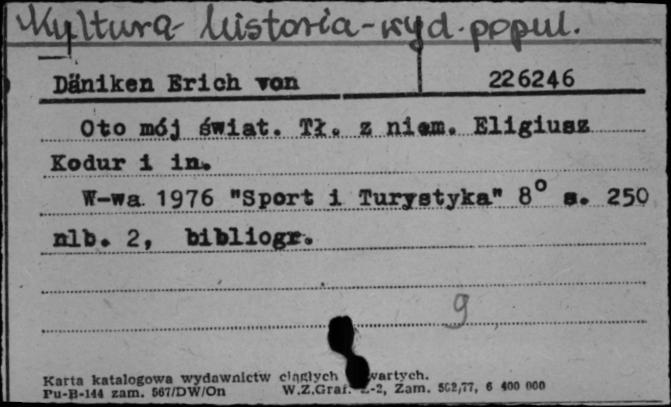 Kultura - historia - wyd. popul.
Däniken Erich von 226246
Oto mój świat. Tł. z niem. Eligiusz
Kodur i in.
W-wa 1976 "Sport i Turystyka" 8° s. 250
nlb. 2, bibliogr.
9
Karta katalogowa wydawnictw ciągłych wartych.
Pu-B-144 zam. 567/DW/On W.Z.Graf. Z-2, Zam. 502/77, 6 400 000